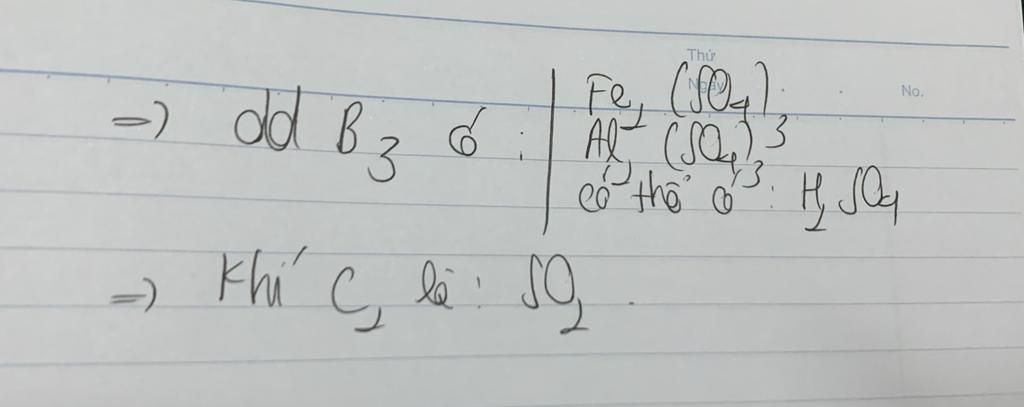 Thứ
Ngày No.
=> dd B3 có : | Fe2(SO4)3
Al2(SO4)3
có thể có : H2SO4
=> Khí C2 là : SO2 .